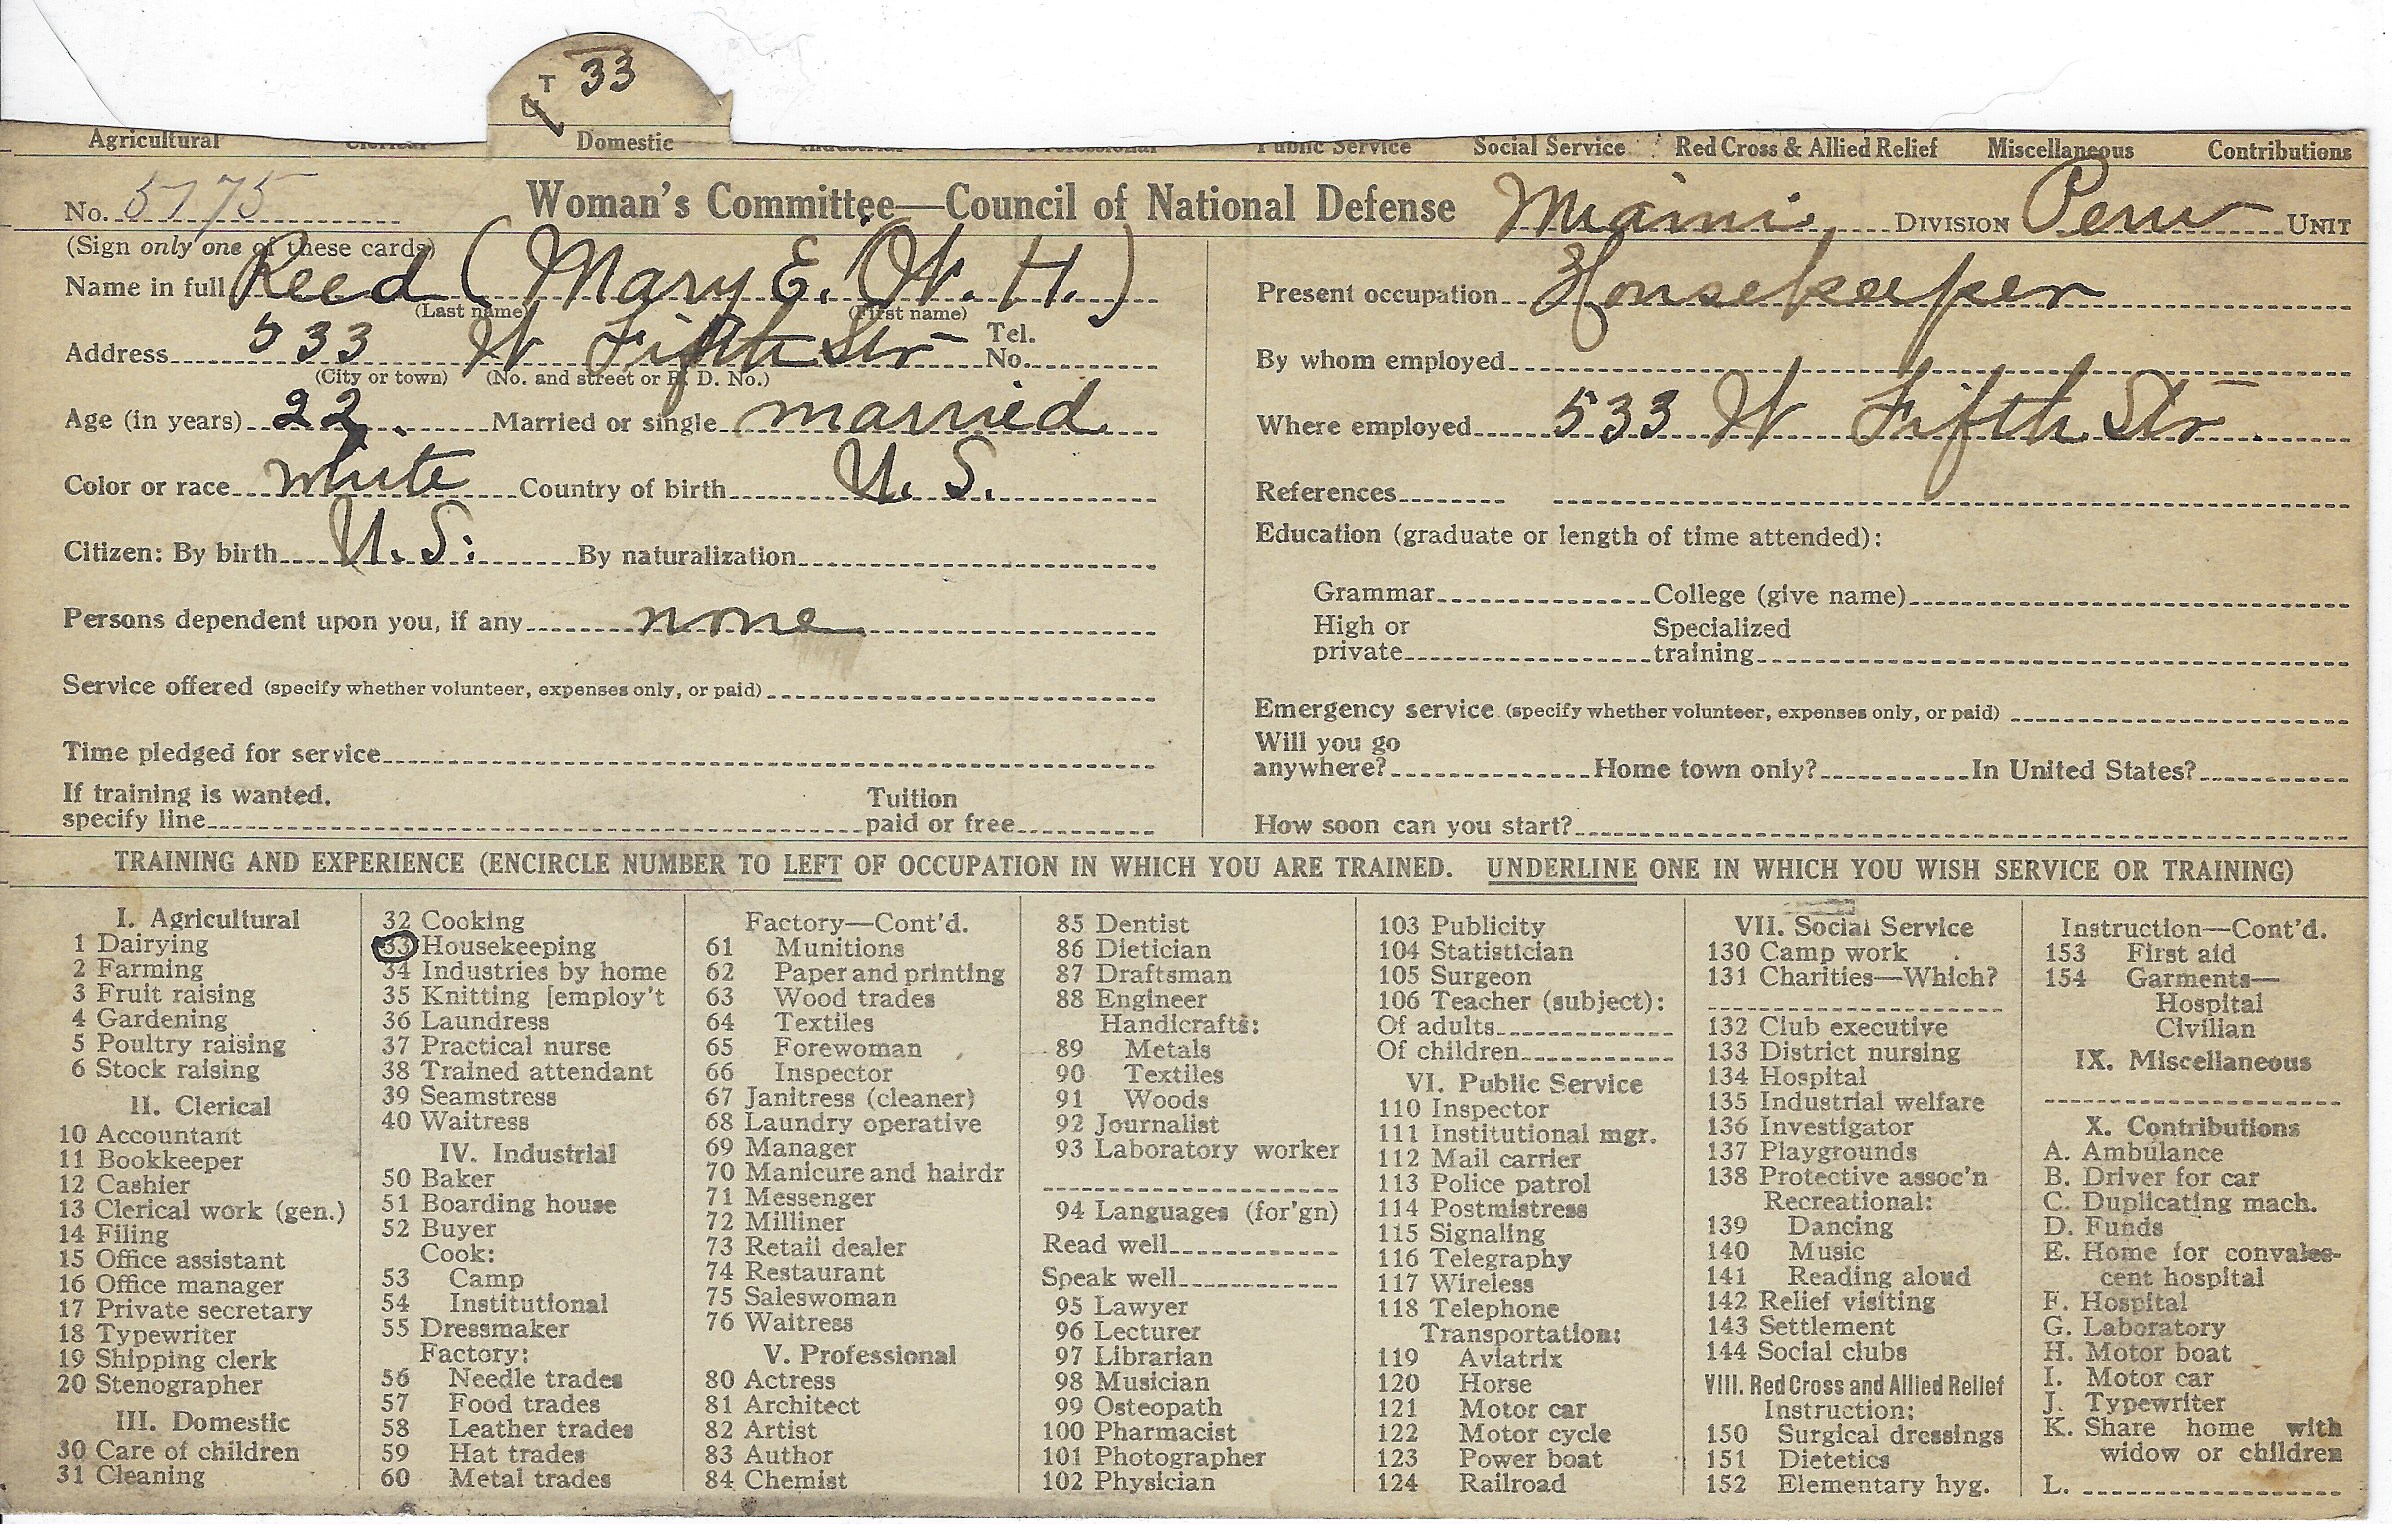 T 33
Agricultural Clerical Domestic Industrial Professional Public Service Social Service Red Cross & Allied Relief Miscellaneous Contributions
No. 5775 Woman's Committee—Council of National Defense Miami DIVISION Peru UNIT
(Sign only one of these cards)
Name in full Reed (Mary E. (W. H.)
(Last name) (First name)
Address 533 W Fifth Str Tel. No.
(City or town) (No. and street or R. D. No.)
Age (in years) 22 Married or single married
Color or race white Country of birth U. S.
Citizen: By birth U. S. By naturalization
Persons dependent upon you, if any none
Service offered (specify whether volunteer, expenses only, or paid)
Time pledged for service
If training is wanted, specify line Tuition paid or free
Present occupation Housekeeper
By whom employed
Where employed 533 W Fifth Str
References
Education (graduate or length of time attended):
Grammar College (give name)
High or private Specialized training
Emergency service (specify whether volunteer, expenses only, or paid)
Will you go anywhere? Home town only? In United States?
How soon can you start?
TRAINING AND EXPERIENCE (ENCIRCLE NUMBER TO LEFT OF OCCUPATION IN WHICH YOU ARE TRAINED. UNDERLINE ONE IN WHICH YOU WISH SERVICE OR TRAINING)
I. Agricultural
1 Dairying
2 Farming
3 Fruit raising
4 Gardening
5 Poultry raising
6 Stock raising
II. Clerical
10 Accountant
11 Bookkeeper
12 Cashier
13 Clerical work (gen.)
14 Filing
15 Office assistant
16 Office manager
17 Private secretary
18 Typewriter
19 Shipping clerk
20 Stenographer
III. Domestic
30 Care of children
31 Cleaning
32 Cooking
33 Housekeeping
34 Industries by home
35 Knitting [employ't
36 Laundress
37 Practical nurse
38 Trained attendant
39 Seamstress
40 Waitress
IV. Industrial
50 Baker
51 Boarding house
52 Buyer
Cook:
53 Camp
54 Institutional
55 Dressmaker
Factory:
56 Needle trades
57 Food trades
58 Leather trades
59 Hat trades
60 Metal trades
Factory—Cont'd.
61 Munitions
62 Paper and printing
63 Wood trades
64 Textiles
65 Forewoman
66 Inspector
67 Janitress (cleaner)
68 Laundry operative
69 Manager
70 Manicure and hairdr
71 Messenger
72 Milliner
73 Retail dealer
74 Restaurant
75 Saleswoman
76 Waitress
V. Professional
80 Actress
81 Architect
82 Artist
83 Author
84 Chemist
85 Dentist
86 Dietician
87 Draftsman
88 Engineer
Handicrafts:
89 Metals
90 Textiles
91 Woods
92 Journalist
93 Laboratory worker
94 Languages (for'gn)
Read well
Speak well
95 Lawyer
96 Lecturer
97 Librarian
98 Musician
99 Osteopath
100 Pharmacist
101 Photographer
102 Physician
103 Publicity
104 Statistician
105 Surgeon
106 Teacher (subject):
Of adults
Of children
VI. Public Service
110 Inspector
111 Institutional mgr.
112 Mail carrier
113 Police patrol
114 Postmistress
115 Signaling
116 Telegraphy
117 Wireless
118 Telephone
Transportation:
119 Aviatrix
120 Horse
121 Motor car
122 Motor cycle
123 Power boat
124 Railroad
VII. Social Service
130 Camp work
131 Charities—Which?
132 Club executive
133 District nursing
134 Hospital
135 Industrial welfare
136 Investigator
137 Playgrounds
138 Protective assoc'n
Recreational:
139 Dancing
140 Music
141 Reading aloud
142 Relief visiting
143 Settlement
144 Social clubs
VIII. Red Cross and Allied Relief
Instruction:
150 Surgical dressings
151 Dietetics
152 Elementary hyg.
Instruction—Cont'd.
153 First aid
154 Garments—
Hospital
Civilian
IX. Miscellaneous
X. Contributions
A. Ambulance
B. Driver for car
C. Duplicating mach.
D. Funds
E. Home for convales-
cent hospital
F. Hospital
G. Laboratory
H. Motor boat
I. Motor car
J. Typewriter
K. Share home with
widow or children
L.